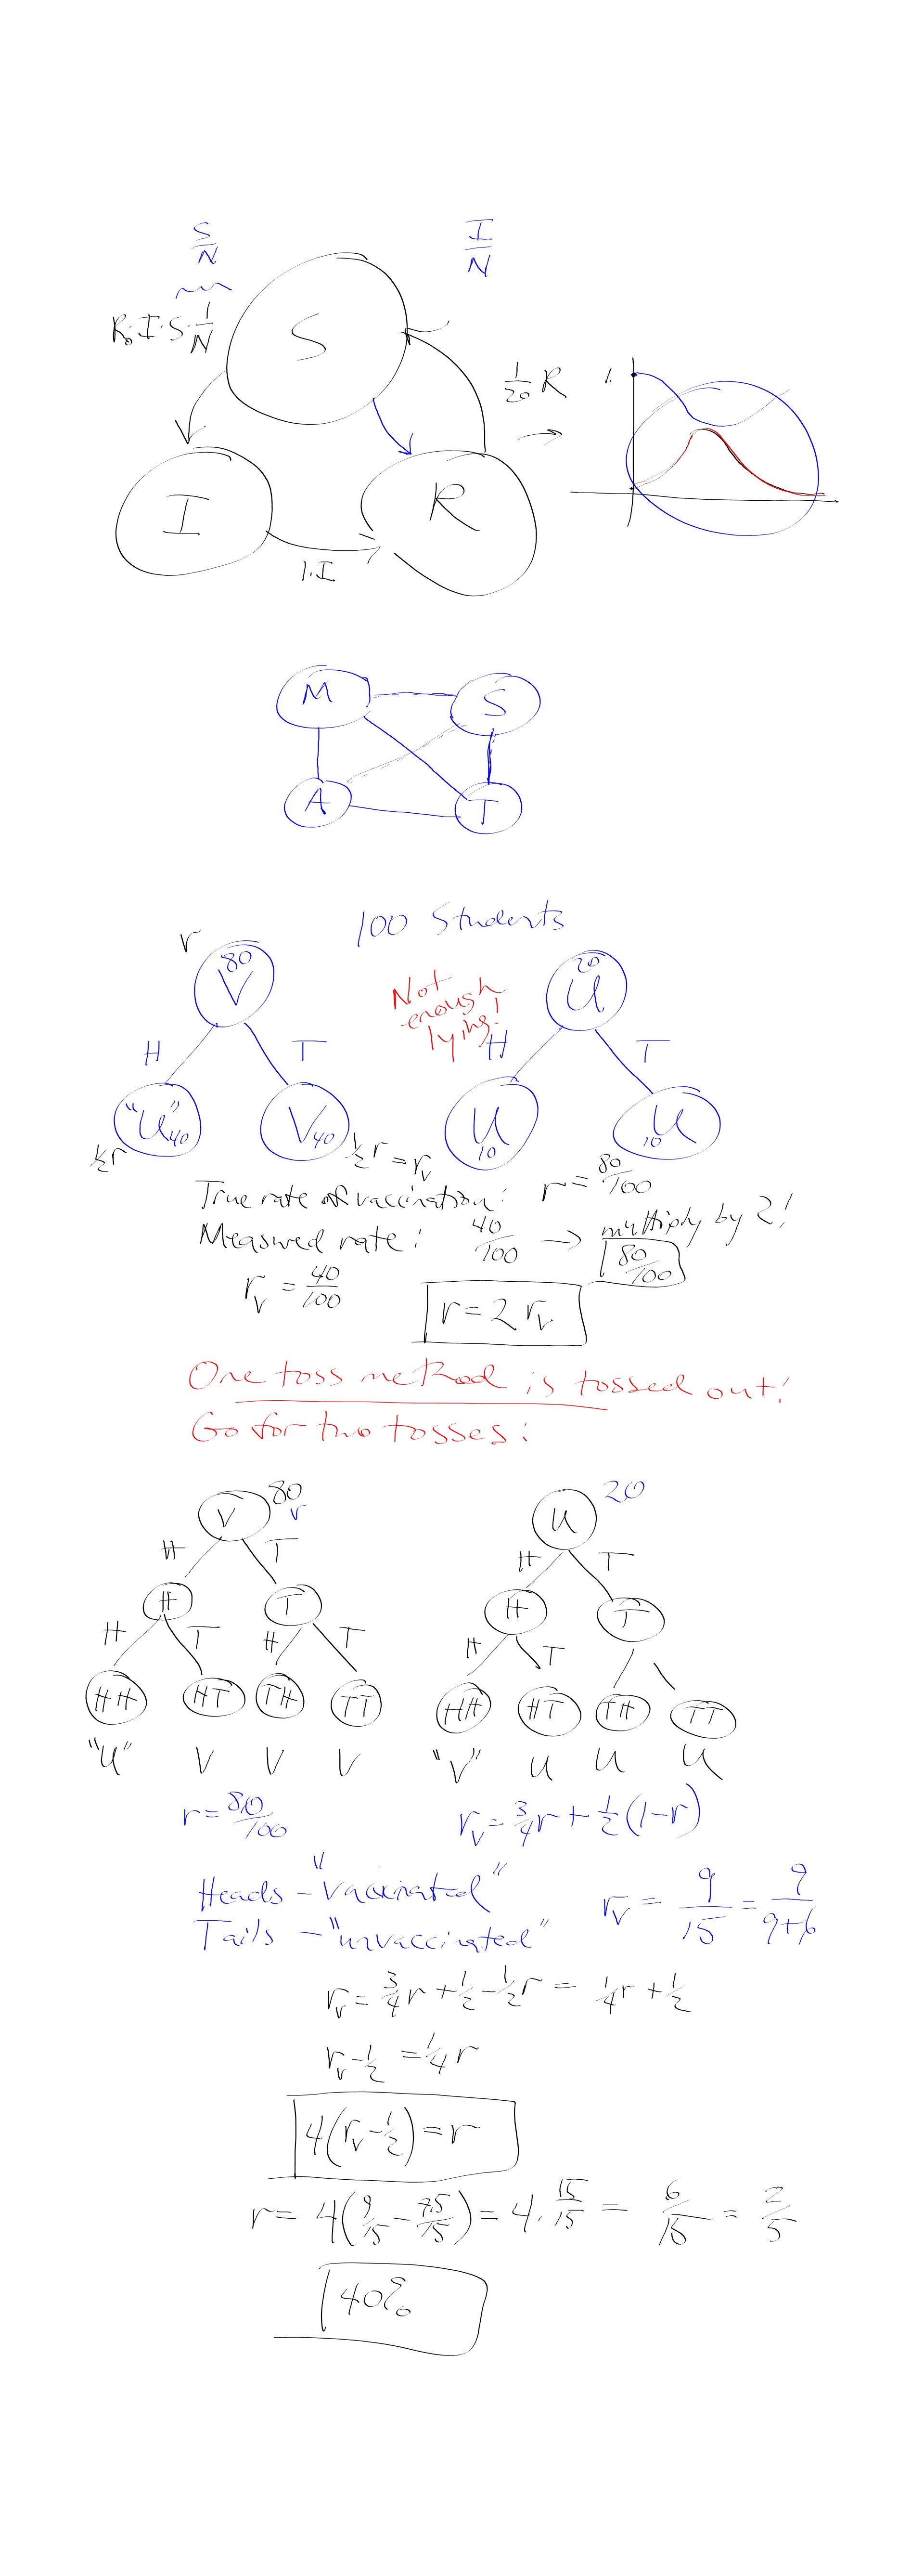 S/N
I/N
R₀·I·S·1/N
S
1/20 R
1.
I
R
1·I
M
S
A
T
100 Students
r
80
V
20
U
Not
enough
lying!
H
T
H
T
"U" 40
V 40
U 10
U 10
½r
½r = r_v
True rate of vaccination: r = 80/100
Measured rate: 40/100 → multiply by 2!
80/100
r_v = 40/100
r = 2 r_v
One toss method is tossed out!
Go for two tosses:
V 80
r
U 20
H T
H T
H T
H T
H T H T
H T
HH HT TH TT
HH HT TH TT
"U" V V V
"V" U U U
r = 80/100
r_v = 3/4 r + 1/2 (1-r)
Heads - "Vaccinated"
Tails - "unvaccinated"
r_v = 9/15 = 9/9+6
r_v = 3/4 r + 1/2 - 1/2 r = 1/4 r + 1/2
r_v - 1/2 = 1/4 r
4(r_v - 1/2) = r
r = 4(9/15 - 7.5/15) = 4 · 1.5/15 = 6/15 = 2/5
40%